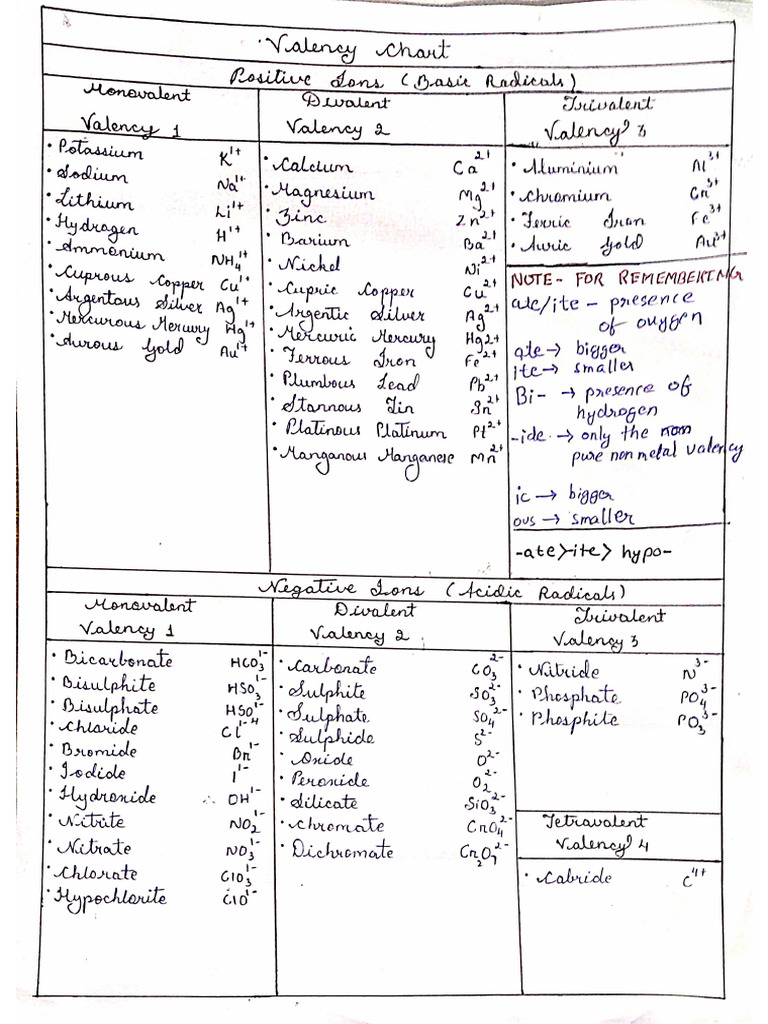 Valency Chart
Positive Ions (Basic Radicals)
Monovalent
Valency 1
• Potassium K¹⁺
• Sodium Na¹⁺
• Lithium Li¹⁺
• Hydrogen H¹⁺
• Ammonium NH₄¹⁺
• Cuprous Copper Cu¹⁺
• Argentous Silver Ag¹⁺
• Mercurous Mercury Hg¹⁺
• Aurous Gold Au¹⁺
Divalent
Valency 2
• Calcium Ca²⁺
• Magnesium Mg²⁺
• Zinc Zn²⁺
• Barium Ba²⁺
• Nickel Ni²⁺
• Cupric Copper Cu²⁺
• Argentic Silver Ag²⁺
• Mercuric Mercury Hg²⁺
• Ferrous Iron Fe²⁺
• Plumbous Lead Pb²⁺
• Stannous Tin Sn²⁺
• Platinous Platinum Pt²⁺
• Manganous Manganese Mn²⁺
Trivalent
Valency 3
• Aluminium Al³⁺
• Chromium Cr³⁺
• Ferric Iron Fe³⁺
• Auric Gold Au³⁺
NOTE- FOR REMEMBERING
ate/ite - presence
of oxygen
ate → bigger
ite → smaller
Bi- → presence of
hydrogen
-ide → only the
pure nonmetal valency
ic → bigger
ous → smaller
-ate>-ite> hypo-
Negative Ions (Acidic Radicals)
Monovalent
Valency 1
• Bicarbonate HCO₃¹⁻
• Bisulphite HSO₃¹⁻
• Bisulphate HSO₄¹⁻
• Chloride Cl¹⁻
• Bromide Br¹⁻
• Iodide I¹⁻
• Hydroxide OH¹⁻
• Nitrite NO₂¹⁻
• Nitrate NO₃¹⁻
• Chlorate ClO₃¹⁻
• Hypochlorite ClO¹⁻
Divalent
Valency 2
• Carbonate CO₃²⁻
• Sulphite SO₃²⁻
• Sulphate SO₄²⁻
• Sulphide S²⁻
• Oxide O²⁻
• Peroxide O₂²⁻
• Silicate SiO₃²⁻
• Chromate CrO₄²⁻
• Dichromate Cr₂O₇²⁻
Trivalent
Valency 3
• Nitride N³⁻
• Phosphate PO₄³⁻
• Phosphite PO₃³⁻
Tetravalent
Valency 4
• Cabride C⁴⁺